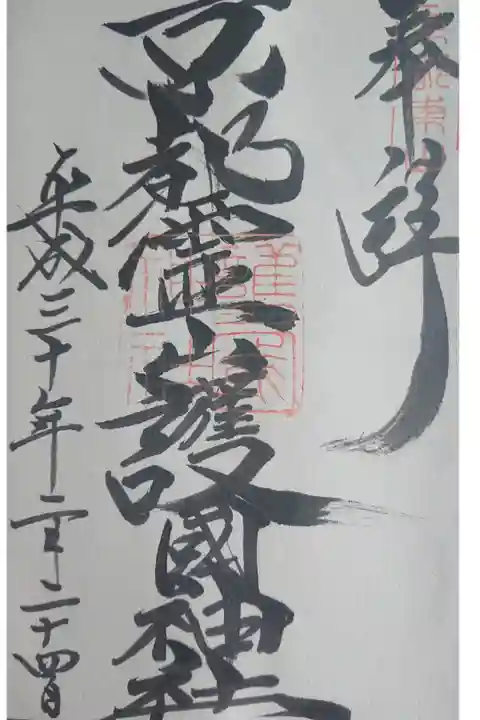 奉拝
京都霊山護國神社
平成三十年二月二十四日